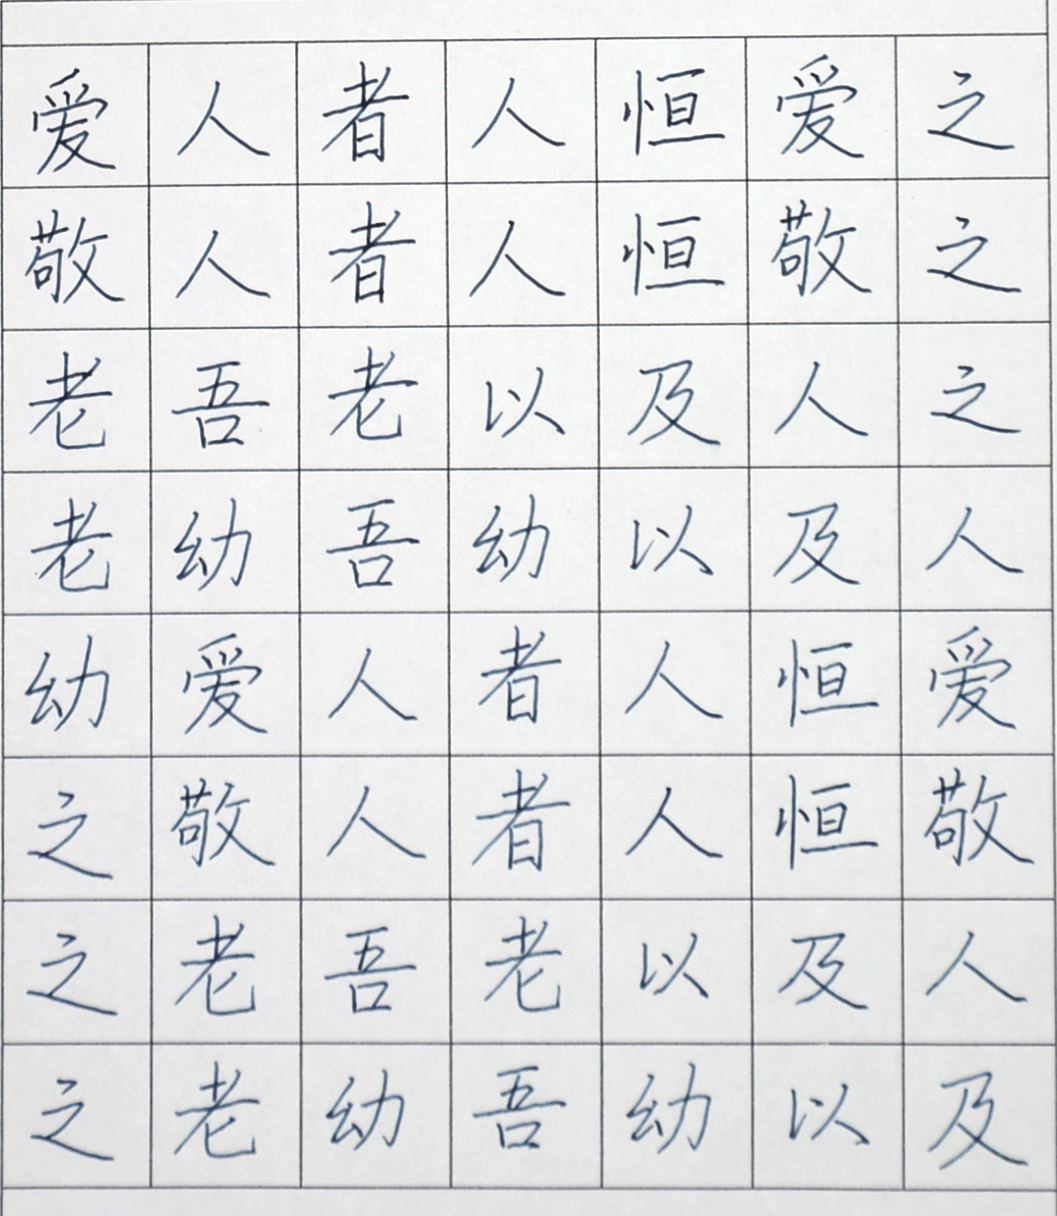 爱人者人恒爱之
敬人者人恒敬之
老吾老以及人之
老幼吾幼以及人
幼爱人者人恒爱
之敬人者人恒敬
之老吾老以及人
之老幼吾幼以及